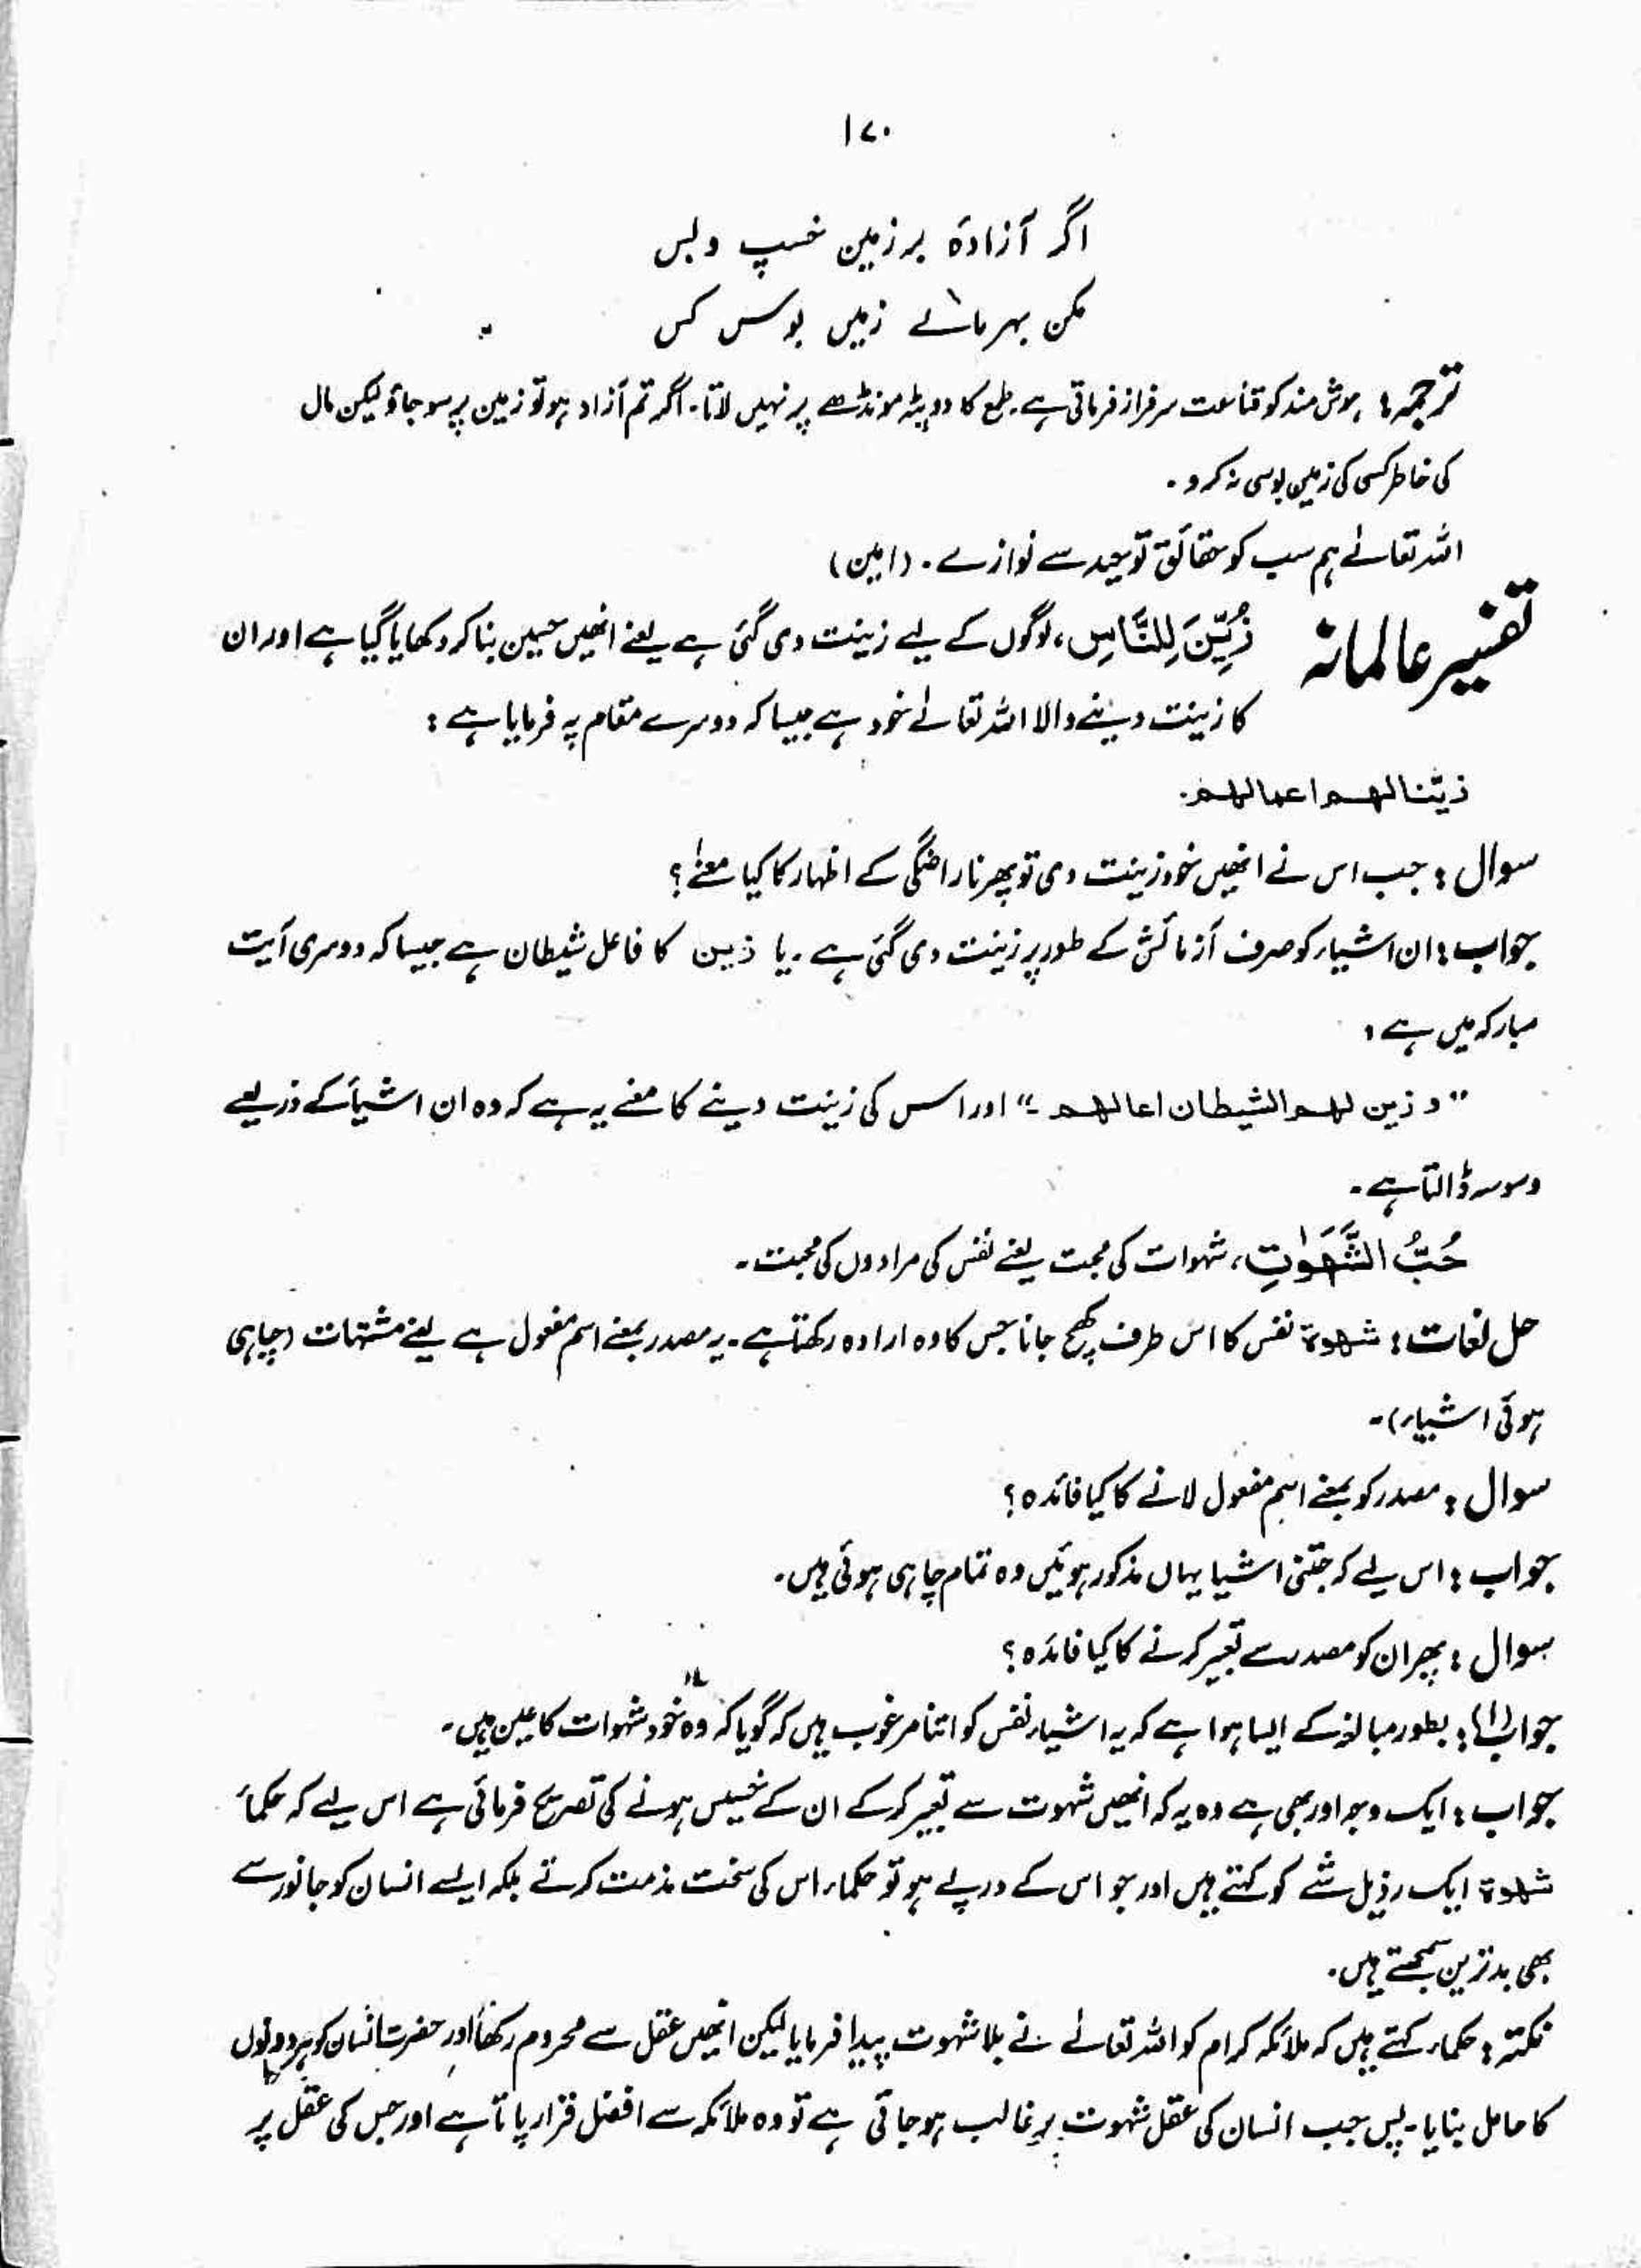 ۱۷۰
اگر آزادۂ برزمین خسپ و بس
مکن بہر مالے زمیں بوس کس
ترجمہ: ہوش مند کو قناعت سرفراز فرماتی ہے۔ طمع کا دوپٹہ مونڈھے پر نہیں لاتا۔ اگر تم آزاد ہو تو زمین پر سو جاؤ لیکن مال
کی خاطر کسی کی زمین بوسی نہ کرو۔
اللہ تعالےٰ ہم سب کو حقائق توحید سے نوازے۔ (امین)
تفسیر عالمانہ زُیِّنَ لِلنَّاسِ، لوگوں کے لیے زینت دی گئی ہے یعنے انھیں حسین بنا کر دکھایا گیا ہے اور ان
کا زینت دینے والا اللہ تعالےٰ خود ہے جیسا کہ دوسرے مقام پہ فرمایا ہے:
زیّنا لہم اعمالہم۔
سوال: جب اس نے انھیں خود زینت دی تو پھر ناراضگی کے اظہار کا کیا معنےٰ؟
جواب: ان اشیار کو صرف آزمائش کے طور پر زینت دی گئی ہے۔ یا زین کا فاعل شیطان ہے جیسا کہ دوسری آیت
مبارکہ میں ہے:
"و زین لہم الشیطان اعالہم۔" اور اس کی زینت دینے کا معنے یہ ہے کہ وہ ان اشیأ کے ذریعے
وسوسہ ڈالتا ہے۔
حُبُّ الشَّہَوٰتِ، شہوات کی محبت یعنے نفس کی مرادوں کی محبت۔
حل لغات: شہوۃ نفس کا اس طرف کھچ جانا جس کا وہ ارادہ رکھتا ہے۔ یہ مصدر بمعنے اسم مفعول ہے یعنے مشتہات (چاہی
ہوئی اشیار)۔
سوال: مصدر کو بمعنے اسم مفعول لانے کا کیا فائدہ؟
جواب: اس لیے کہ جتنی اشیا یہاں مذکور ہوئیں وہ تمام چاہی ہوئی ہیں۔
سوال: پھر ان کو مصدر سے تعبیر کرنے کا کیا فائدہ؟
جواب(۱): بطور مبالغہ کے ایسا ہوا ہے کہ یہ اشیار نفس کو اتنا مرغوب ہیں کہ گویا کہ وہ خود شہوات کا عین ہیں۔
جواب: ایک وجہ اور بھی ہے وہ یہ کہ انھیں شہوت سے تعبیر کر کے ان کے خسیس ہونے کی تصریح فرمائی ہے اس لیے کہ حکمأ
شہوۃ ایک رذیل شے کو کہتے ہیں اور جو اس کے درپے ہو تو حکماء اس کی سخت مذمت کرتے بلکہ ایسے انسان کو جانور سے
بھی بدترین سمجھتے ہیں۔
نکتہ: حکماء کہتے ہیں کہ ملائکہ کرام کو اللہ تعالےٰ نے بلا شہوت پیدا فرمایا لیکن انھیں عقل سے محروم رکھا اور حضرت انسان کو ہر دونوں
کا حامل بنایا۔ پس جب انسان کی عقل شہوت پر غالب ہو جاتی ہے تو وہ ملائکہ سے افضل قرار پاتا ہے اور جس کی عقل پر